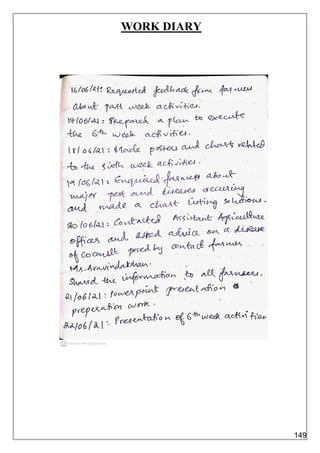 WORK DIARY
16/06/21: Requested feedback from farmers
about past week activities.
17/06/21: Prepared a plan to execute
the 6th week activities.
18/06/21: Made posters and charts related
to the sixth week activities.
19/06/21: Enquired farmers about
major pest and diseases occuring
and made a chart listing solutions.
20/06/21: Contacted Assistant Agriculture
officer and asked advice on a disease
of coconut posed by contact farmer
Mr. Aravindakshan.
Shared the information to all farmers.
21/06/21: Powerpoint presentation
preperation work.
22/06/21: Presentation of 6th week activities
Scanned with CamScanner
149